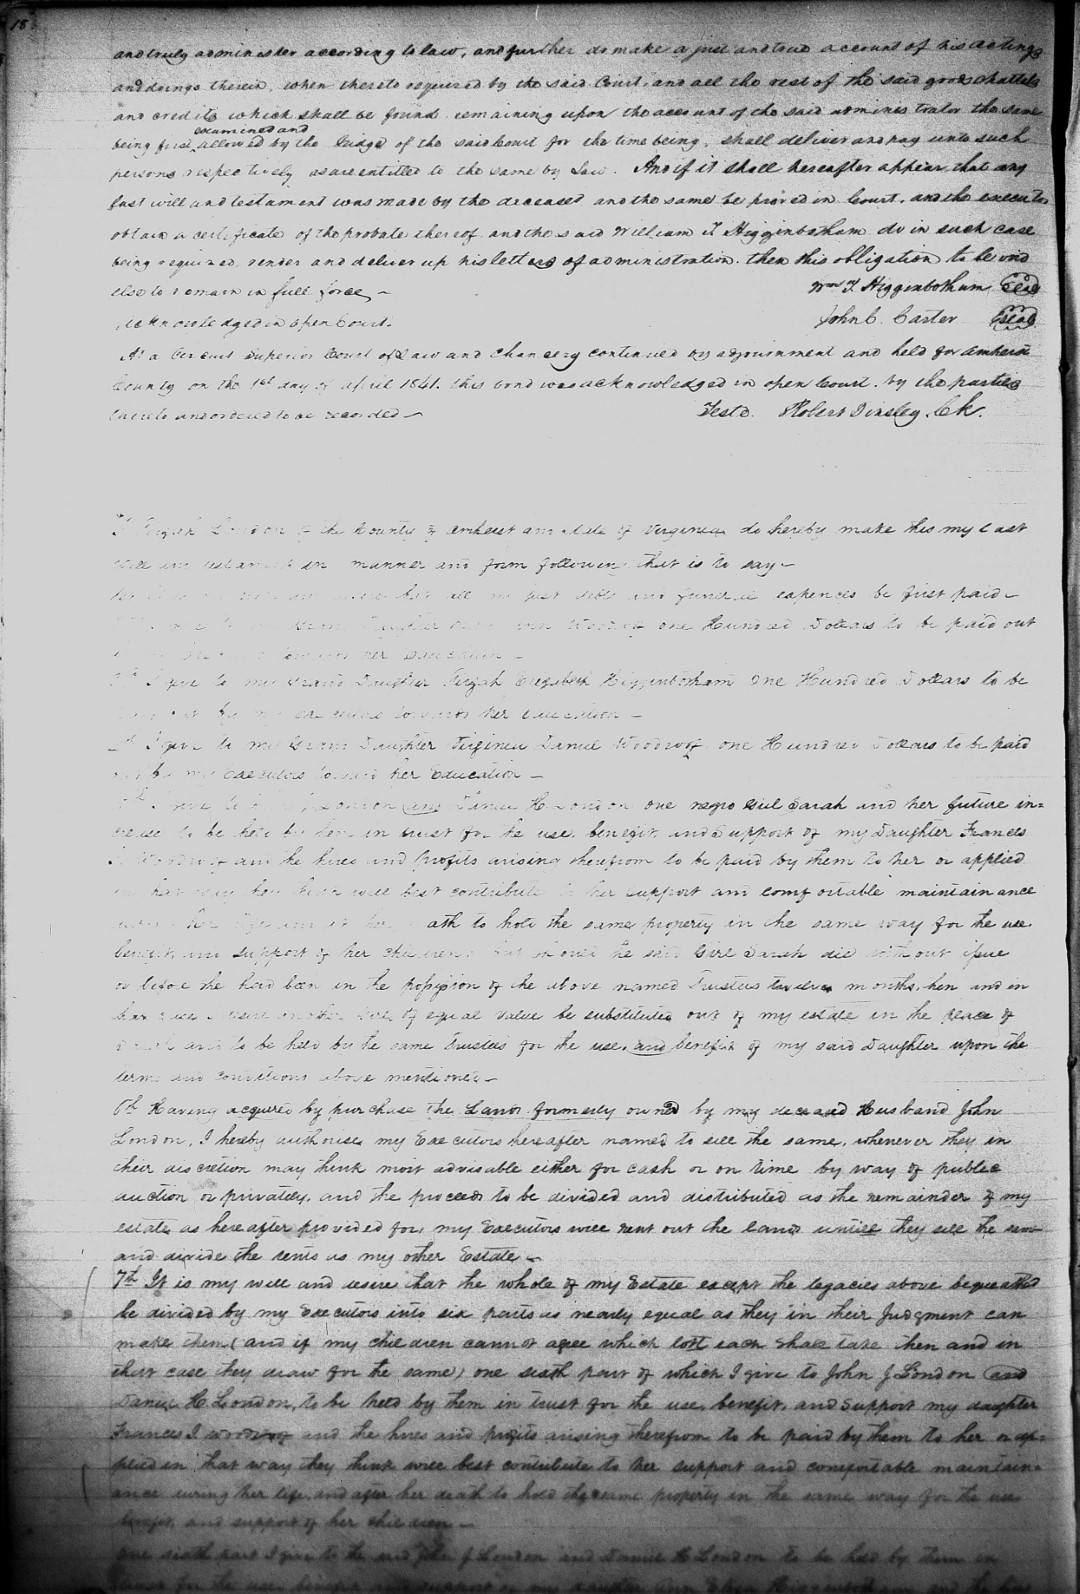 18
and truly administer according to law, and further do make a just and true account of his actings
and doings therein, when thereto required by the said Court, and all the rest of the said goods chattels
and credits which shall be found remaining upon the account of the said administrator the same
examined and
being first allowed by the Judge of the said Court for the time being, shall deliver and pay unto such
persons respectively as are entitled to the same by Law. And if it shall hereafter appear that any
last will and testament was made by the deceased and the same be proved in Court, and the executor
obtain a certificate of the probate thereof and the said William I Higginbotham do in such case
being required, render and deliver up his letters of administration. then this obligation to be void
else to remain in full force,
Wm I Higginbotham Seal
Acknowledged in open Court.
John C. Carter Seal
At a Circuit Superior Court of Law and Chancery continued by adjournment and held for Amherst
County on the 1st day of April 1841. this bond was acknowledged in open Court. by the parties
thereto and ordered to be recorded
Teste. Robert Tinsley, Ck.
I London of the County of Amherst and State of Virginia do hereby make this my Last
will and testament in manner and form following that is to say
that all my just debts and funeral expences be first paid
Daughter Ann Woodroof one Hundred Dollars to be paid out
towards her Education
I give to my Grand Daughter Elizabeth Higginbotham One Hundred Dollars to be
by my executors towards her education
I give to my Grand Daughter Virginia Daniel Woodroof one Hundred Dollars to be paid
by my executors toward her Education
give to London (and) Daniel H London one negro Girl Sarah and her future in=
crease to be held by them in trust for the use, benefit, and Support of my Daughter Frances
I Woodroof and the hires and profits arising therefrom to be paid by them to her or applied
in that way they think will best contribute to her support and comfortable maintainance
her death to hold the same property in the same way for the use
benefit, and Support of her children but should the said Girl Sarah die without issue
or before she had been in the possession of the above named Trustees twelve months, then and in
that case I desire another Girl of equal value be substituted out of my estate in the place of
Sarah and to be held by the same Trustees for the use and benefit of my said Daughter upon the
terms and conditions above mentioned
6th Having acquired by purchase the Lands formerly owned by my deceased Husband John
London, I hereby authorise my Executors hereafter named to sell the same, whenever they in
their discretion may think most advisable either for cash or on time by way of public
auction or privately, and the proceeds to be divided and distributed as the remainder of my
estate as hereafter provided for, my Executors will rent out the lands untill they sell the same
and divide the rents as my other Estate
7th It is my will and desire that the whole of my Estate except the legacies above bequeathed
be divided by my Executors into six parts as nearly equal as they in their Judgment can
make them (and if my children cannot agree which lott each shall take then and in
that case they draw for the same) one sixth part of which I give to John J London (and
Daniel H London, to be held by them in trust for the use, benefit, and Support my daughter
Frances I Woodroof and the hires and profits arising therefrom to be paid by them to her or ap=
plied in that way they think will best contribute to her support and comfortable maintain=
ance during her life, and after her death to hold the same property in the same way for the use
benefit, and support of her children
One sixth part I give to the said John J London and Daniel H London to be held by them in